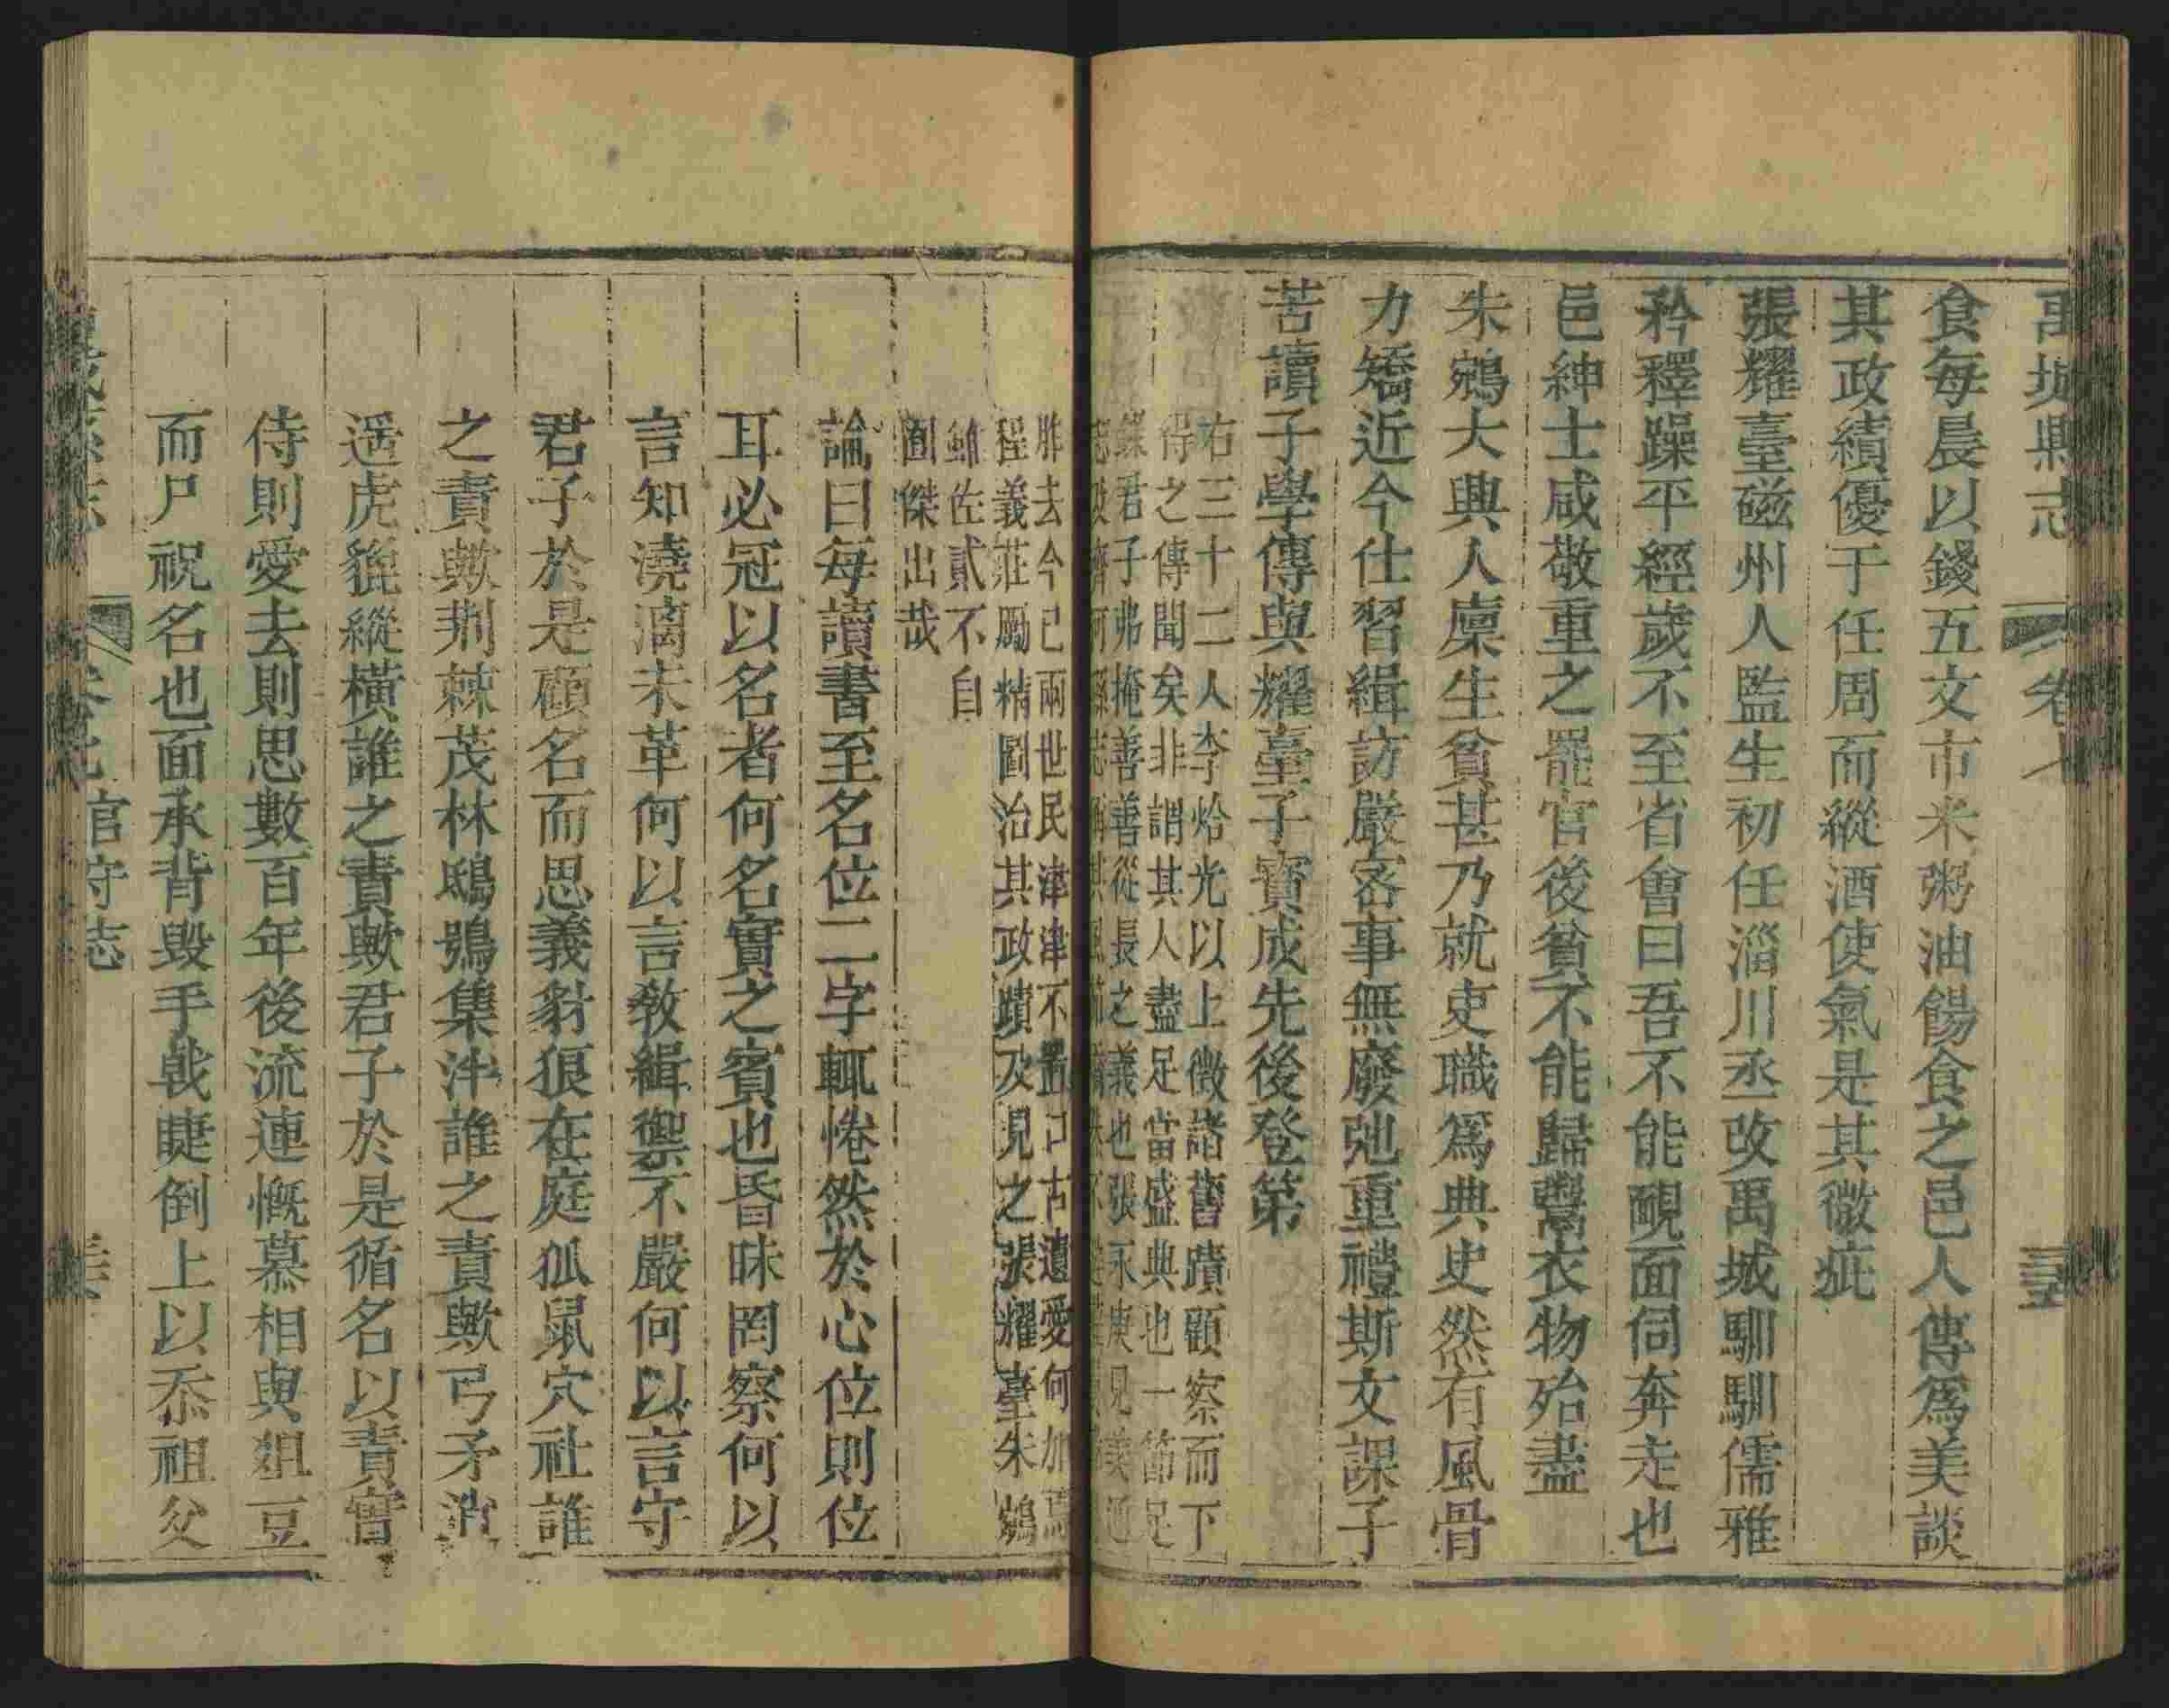 禹城縣志 卷七 三五
食每晨以錢五文市米粥油餳食之邑人傳爲美談
其政績優于任周而縱酒使氣是其微疵
張耀臺磁州人監生初任淄川丞改禹城馴馴儒雅
矜釋躁平經歲不至省會曰吾不能靦面伺奔走也
邑紳士咸敬重之罷官後貧不能歸鬻衣物殆盡
朱鵷大興人廩生貧甚乃就吏職爲典史然有風骨
力矯近今仕習緝訪嚴密事無廢弛重禮斯文課子
苦讀子學傳與耀臺子寳成先後登第
右三十二人李烚光以上徵諸舊蹟顧察而下
得之傳聞矣非謂其人盡足當盛典也一節足
錄君子弗掩善善從長之義也張永庚見美近
胙去今已兩世民津津不置口古遺愛何加焉
程義莊勵精圖治其政蹟及見之張耀臺朱鵷
雖佐貳不自
囿傑出哉
論曰每讀書至名位二字輒惓然於心位則位
耳必冠以名者何名實之賓也昏昧罔察何以
言知澆漓未革何以言敎緝禦不嚴何以言守
君子於是顧名而思義豺狼在庭狐鼠穴社誰
之責歟荆棘茂林鴟鴞集泮誰之責歟弓矛消
遥虎貔縱橫誰之責歟君子於是循名以責實
侍則愛去則思數百年後流連慨慕相與俎豆
而尸祝名也面承背毀手戟睫倒上以忝祖父
卷七 官守志